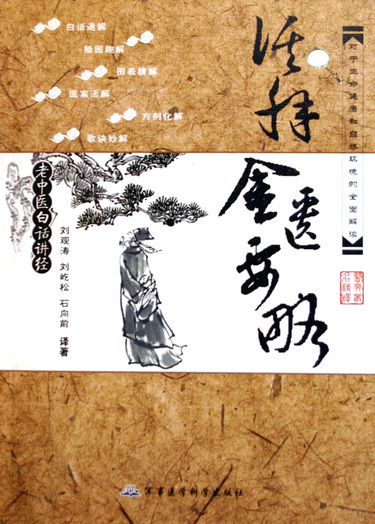 白话通解
插图趣解
图表精解
医案活解
方剂化解
歌诀妙解
金匮要略
对于生命健康和自然环境的全面解读
老中医白话讲经
刘观涛 刘屹松 石向前 译著
军事医学科学出版社